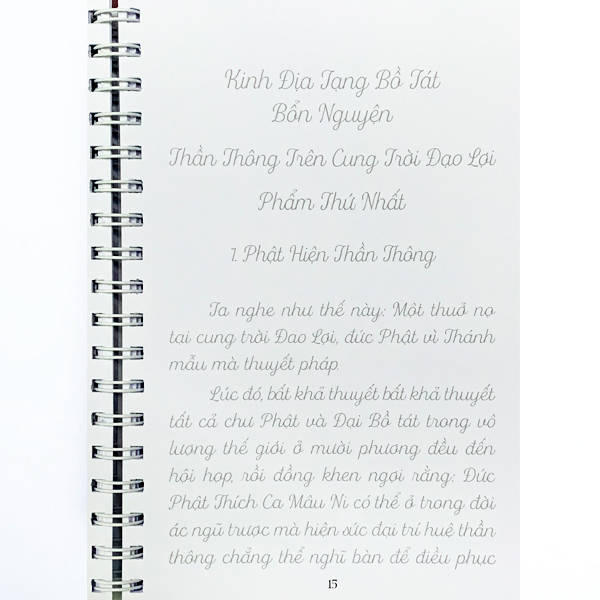 Kinh Địa Tạng Bồ Tát
Bổn Nguyện
Thần Thông Trên Cung Trời Đạo Lợi
Phẩm Thứ Nhất
1. Phật Hiện Thần Thông
Ta nghe như thế này: Một thuở nọ
tại cung trời Đao Lợi, đức Phật vì Thánh
mẫu mà thuyết pháp.
Lúc đó, bất khả thuyết bất khả thuyết
tất cả chư Phật và Đại Bồ tát trong vô
lượng thế giới ở mười phương đều đến
hội họp, rồi đồng khen ngợi rằng: Đức
Phật Thích Ca Mâu Ni có thể ở trong đời
ác ngũ trược mà hiện sức đại trí huệ thần
thông chẳng thể nghĩ bàn để điều phục
15